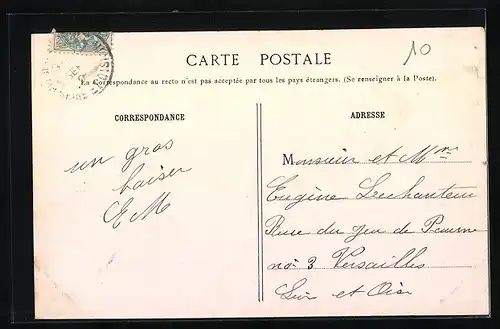 10
CARTE POSTALE
La Correspondance au recto n'est pas acceptée par tous les pays étrangers. (Se renseigner à la Poste).
CORRESPONDANCE
un gros
baiser
EM
ADRESSE
Monsieur et Mme
Eugène
Rue du Jeu de Paume
no 3 Versailles
et Oise